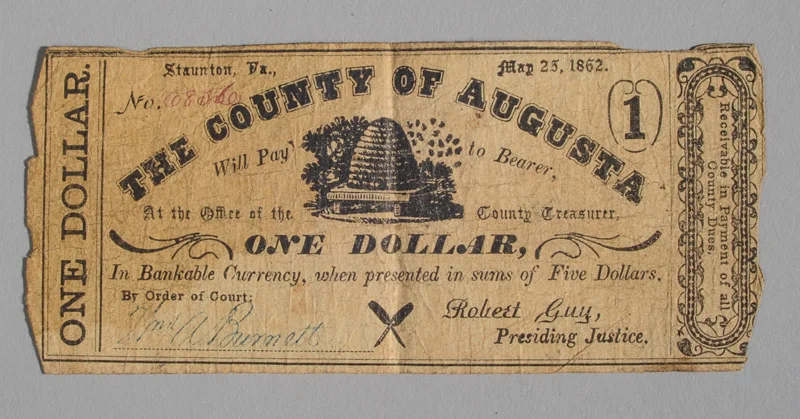 ONE DOLLAR.
Staunton, Va., May 25, 1862.
No.
THE COUNTY OF AUGUSTA
1
Will Pay to Bearer,
At the Office of the County Treasurer,
ONE DOLLAR,
In Bankable Currency, when presented in sums of Five Dollars.
By Order of Court:
Wm A Burnett
Robert Guy,
Presiding Justice.
Receivable in Payment of all
County Dues.